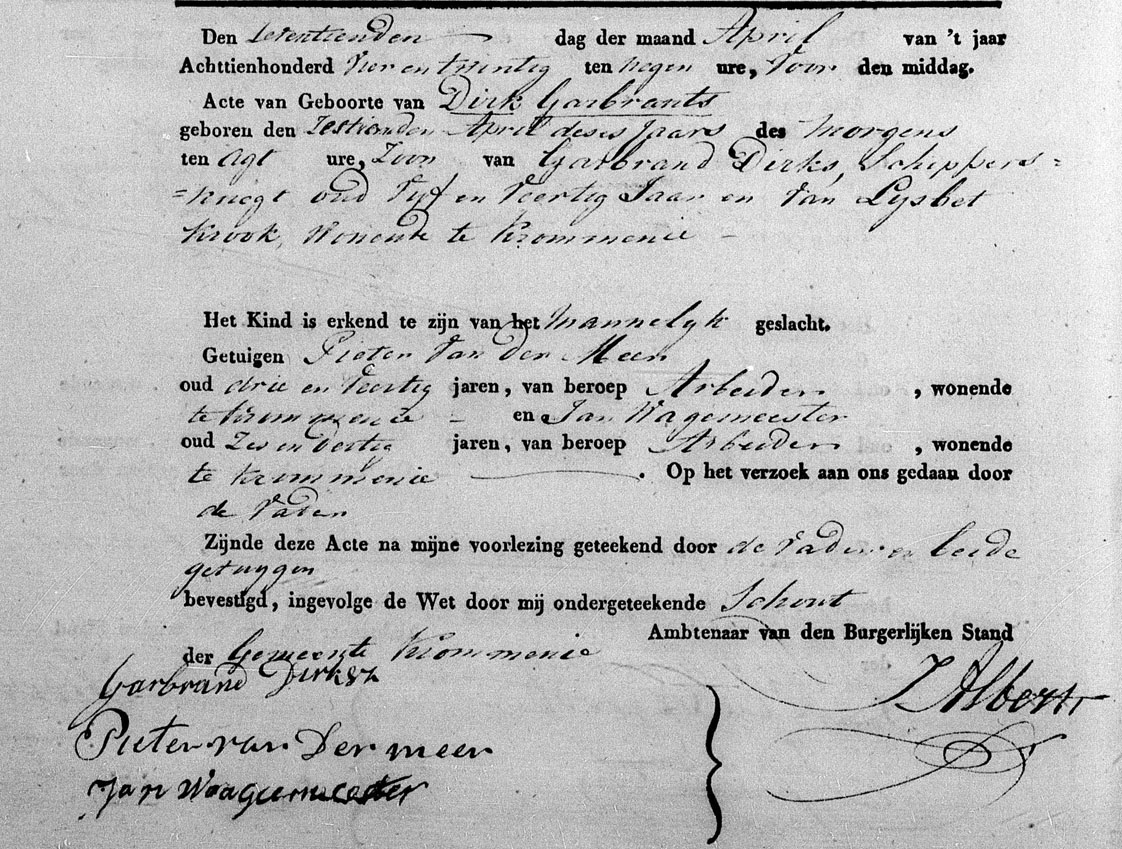 Den Zeventienden dag der maand April van 't jaar
Achttienhonderd Vier en twintig ten negen ure, Voor den middag.
Acte van Geboorte van Dirk Garbrants
geboren den Zestienden April deses Jaars des morgens
ten Agt ure, Zoon van Garbrand Dirks, Schippers=
=knegt oud Vyf en Veertig Jaar en Van Lysbet
Krook, Wonende te Krommenie -
Het Kind is erkend te zijn van het Mannelyk geslacht.
Getuigen Pieter Van der Meer
oud drie en Veertig jaren, van beroep Arbeider , wonende
te Krommenie - en Jan Wagemeester
oud Zes en jaren, van beroep Arbeider , wonende
te Krommenie . Op het verzoek aan ons gedaan door
de Vader
Zijnde deze Acte na mijne voorlezing geteekend door de Vader en beide
getuygen
bevestigd, ingevolge de Wet door mij ondergeteekende Schout
Ambtenaar van den Burgerlijken Stand
der Gemeente Krommenie
Garbrand Dirksz
Albert
Pieter van Der meer
Jan Waagemeester